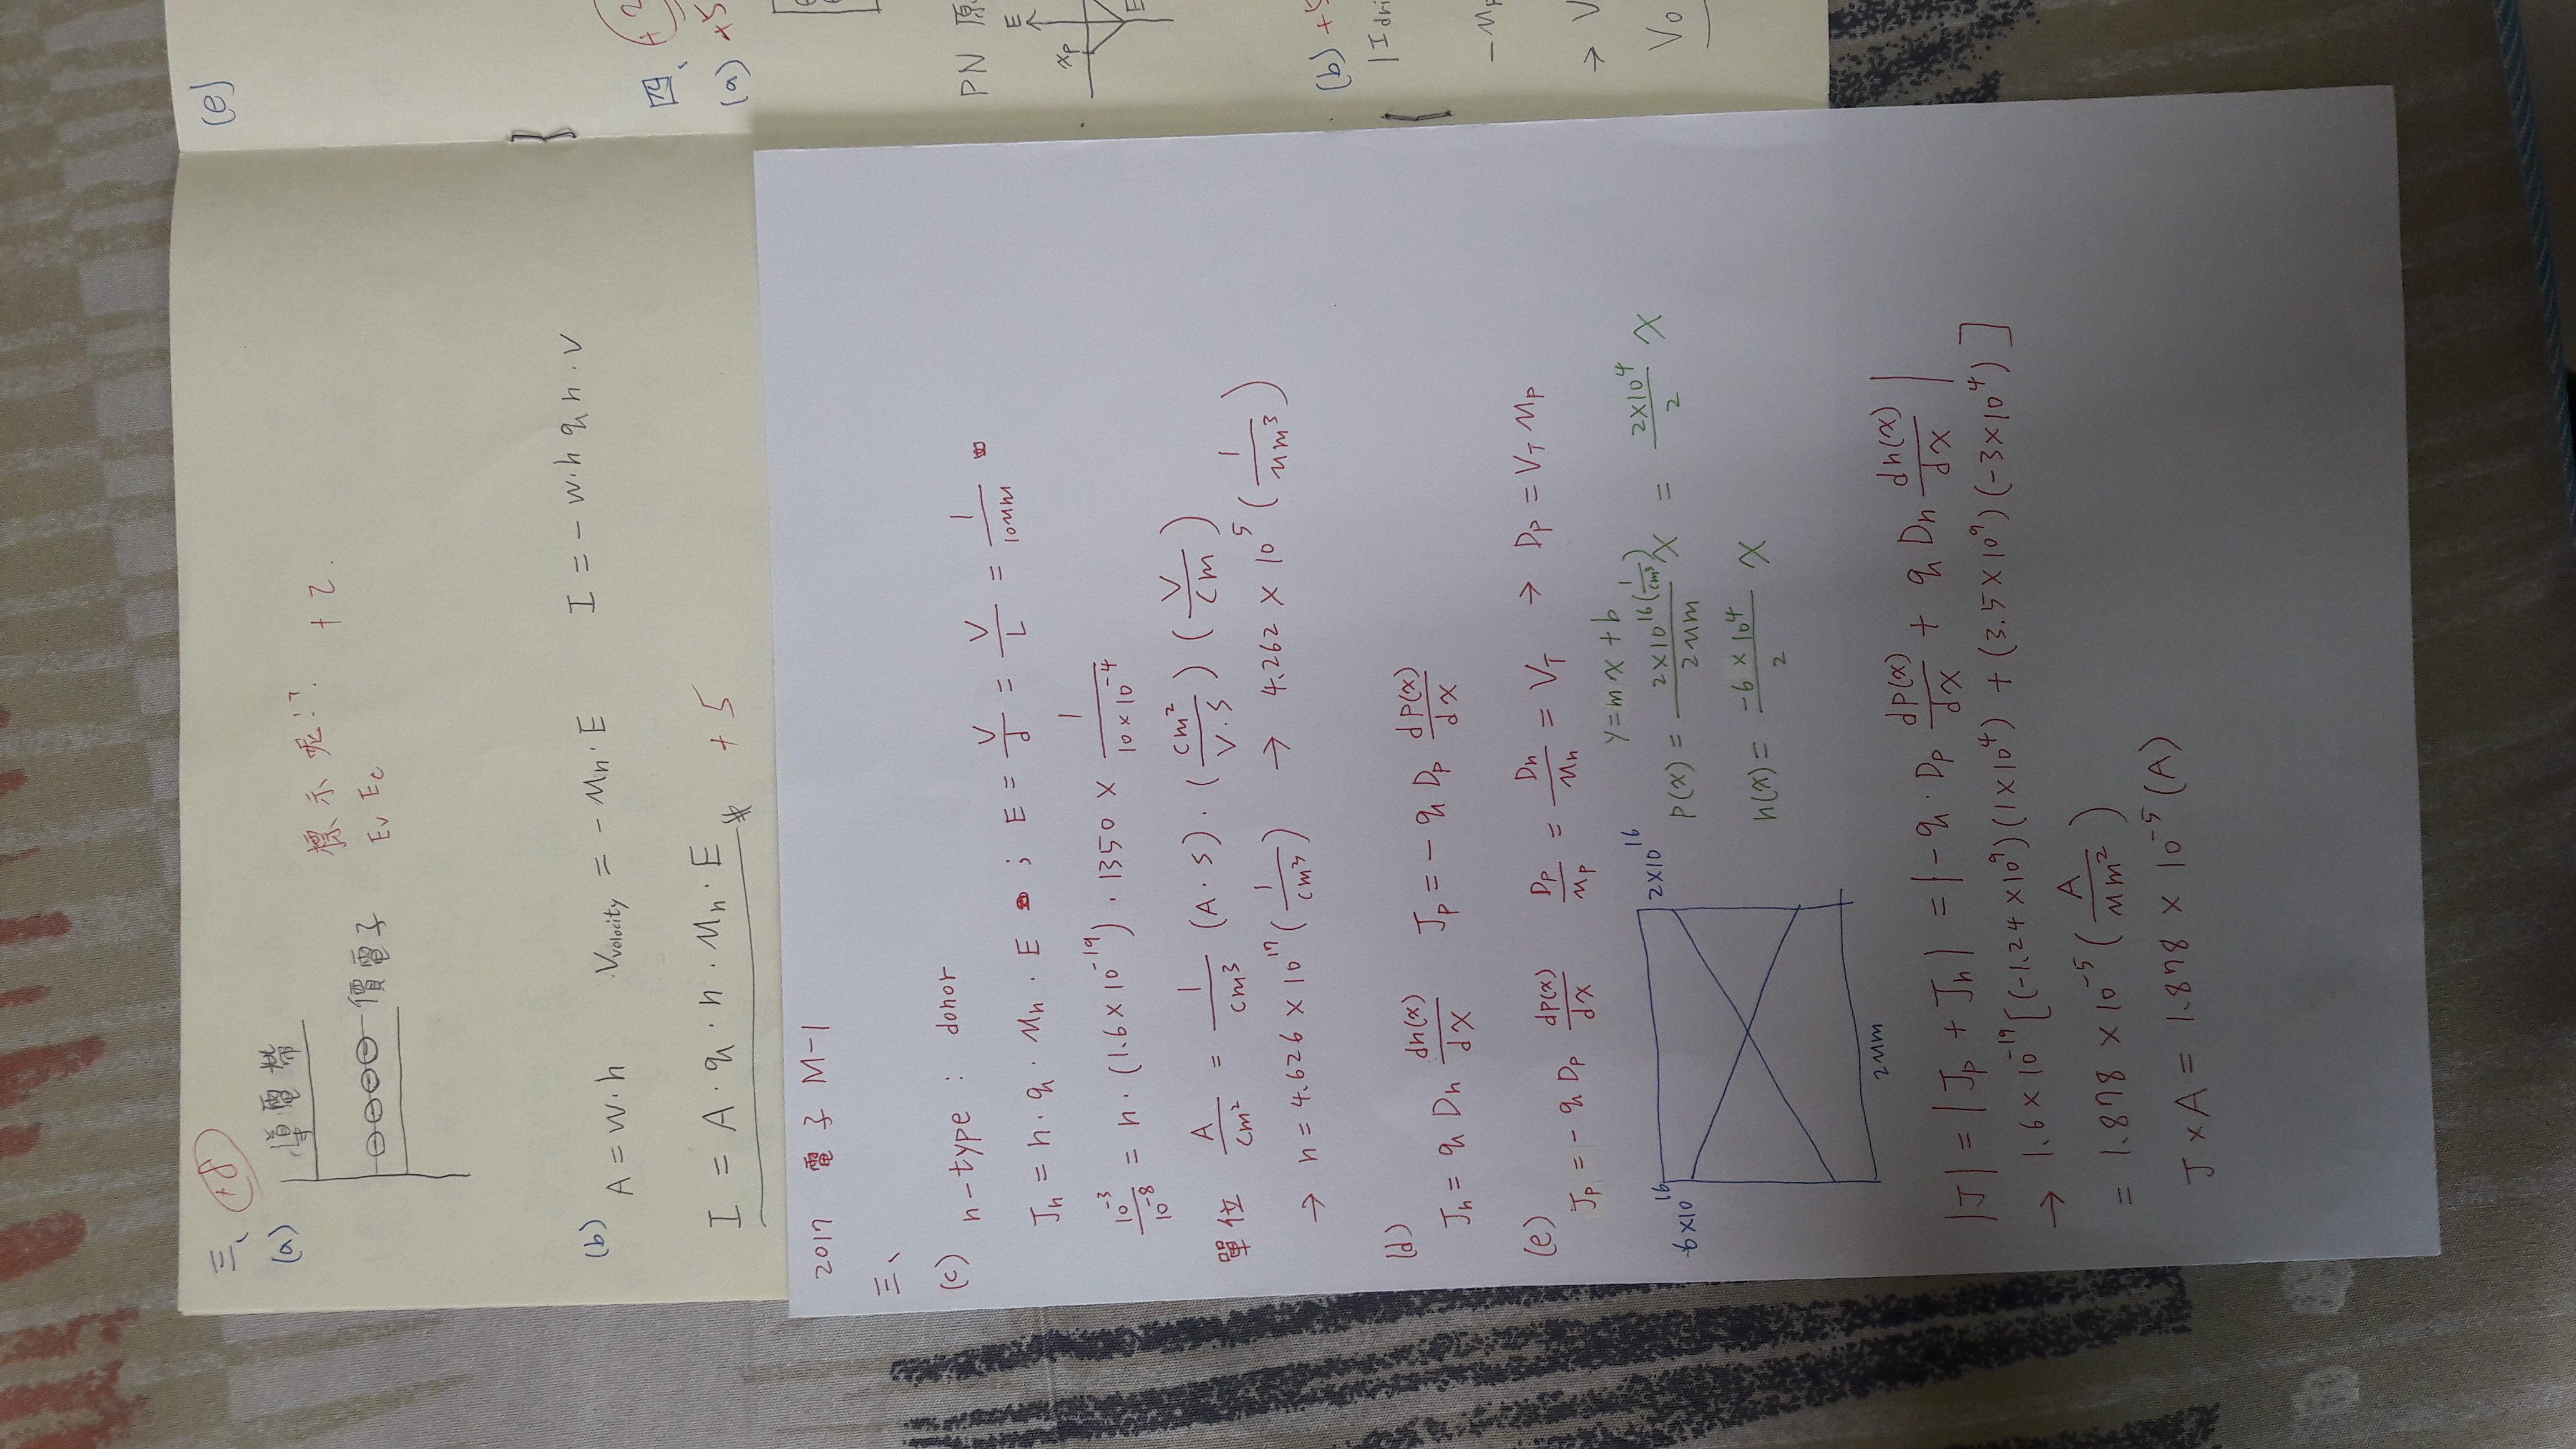 三、 +8
(a) 導電帶
價電子
標示呢!? +2.
Ev Ec
(b) A = W·h Vvelocity = -μn·E I = -w·h q n·v
I = A·q·n·μn·E ※ +5
2017 電子 M-1
三、
(c) n-type : donor
Jn = n·q·μn·E ; E = V/d = V/L = 1/10μm
10^-3/10^-8 = n·(1.6×10^-19)·1350 × 1/(10×10^-4)
單位 A/cm² = 1/cm³ (A·s)·(cm²/V·s)(V/cm)
→ n = 4.626 × 10^17 (1/cm³) → 4.262 × 10^5 (1/μm³)
(d)
Jn = q Dn dn(x)/dx Jp = - q Dp dP(x)/dx
(e)
Jp = - q Dp dp(x)/dx Dp/μp = Dn/μn = VT → Dp = VT μp
y = mx + b
6×10^16 2×10^16
P(x) = 2×10^16(1/cm³)/2μm x = 2×10^4/2 x
n(x) = -6×10^4/2 x
2μm
|J| = |Jp + Jn| = |-q·Dp dP(x)/dx + q Dn dn(x)/dx|
→ 1.6×10^-19[(-1.24×10^9)(1×10^4) + (3.5×10^9)(-3×10^4)]
= 1.878 × 10^-5 (A/μm²)
J×A = 1.878 × 10^-5 (A)
(e)
四、 +2
(a) +5
PN 原
E
xp
E
(b) +5
|I dri
-μp
→ V
Vo